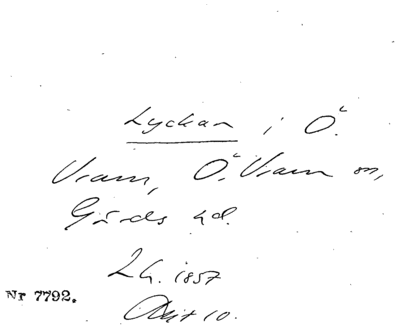 Lyckan i Ö.
Vram, Ö. Vram sn,
Gärds hd.
Lh. 1857
Nr 7792.
Akt 10.